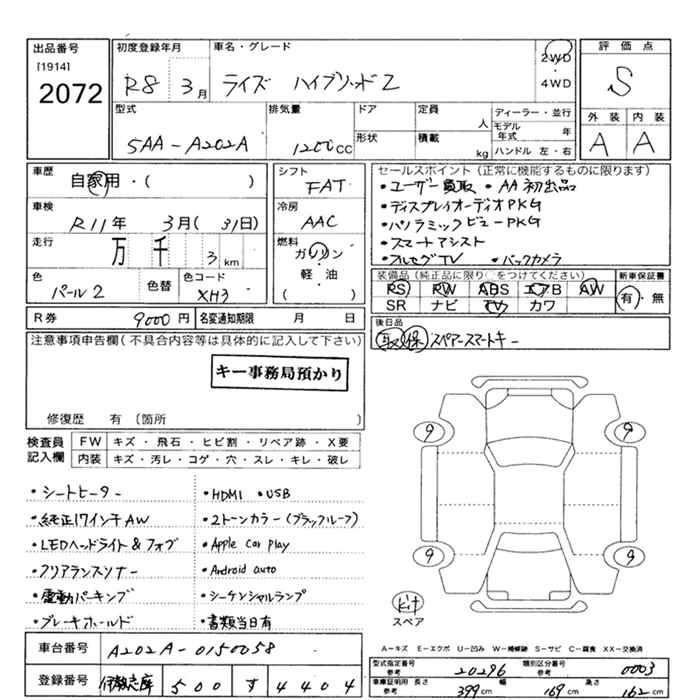 出品番号
[1914]
2072
初度登録年月
R8 3月
車名・グレード
ライズ ハイブリッドZ
2WD
・
4WD
評価点
S
外装 内装
A A
型式
5AA-A202A
排気量
1200cc
ドア
形状
定員 人
積載 kg
ディーラー・並行
モデル年式 年
ハンドル 左・右
車歴
自家用・( )
車検
R11年 3月(31日)
走行
万 千 3km
色
パール2
色替
色コード
XH3
シフト
FAT
冷房
AAC
燃料
ガソリン
・
軽・油
( )
セールスポイント(正常に機能するものに限ります)
・ユーザー買取 ・AA初出品
・ディスプレイオーディオPKG
・パノラミックビューPKG
・スマートアシスト
・フルセグTV ・バックカメラ
装備品(純正品に限り○をつけてください)
PS PW ABS エアB AW
SR ナビ TV カワ
新車保証書
有・無
R券 9000円 名変通知期限 月 日
後日品
取 保 スペアースマートキー
注意事項申告欄(不具合内容等は具体的に記入して下さい)
キー事務局預かり
修復歴 有(箇所 )
検査員
記入欄
FW キズ・飛石・ヒビ割・リペア跡・X要
内装 キズ・汚レ・コゲ・穴・スレ・キレ・破レ
・シートヒーター
・純正17インチAW
・LEDヘッドライト&フォグ
・クリアランスソナー
・電動パーキングブ
・ブレーキホールド
・HDMI ・USB
・2トーンカラー(ブラックルーフ)
・Apple Car Play
・Android auto
・シーケンシャルランプ
・書類当日有
9 9
9 9
kit
スペア
車台番号 A202A-0150058
登録番号 伊勢志摩 500 す 4404
A－キズ E－エクボ U－凹ミ W－補修跡 S－サビ C－腐食 XX－交換済
型式指定番号
参考 20296
類別区分番号
参考 0003
車庫証明用
参考 長さ 399cm 幅 169cm 高さ 162cm